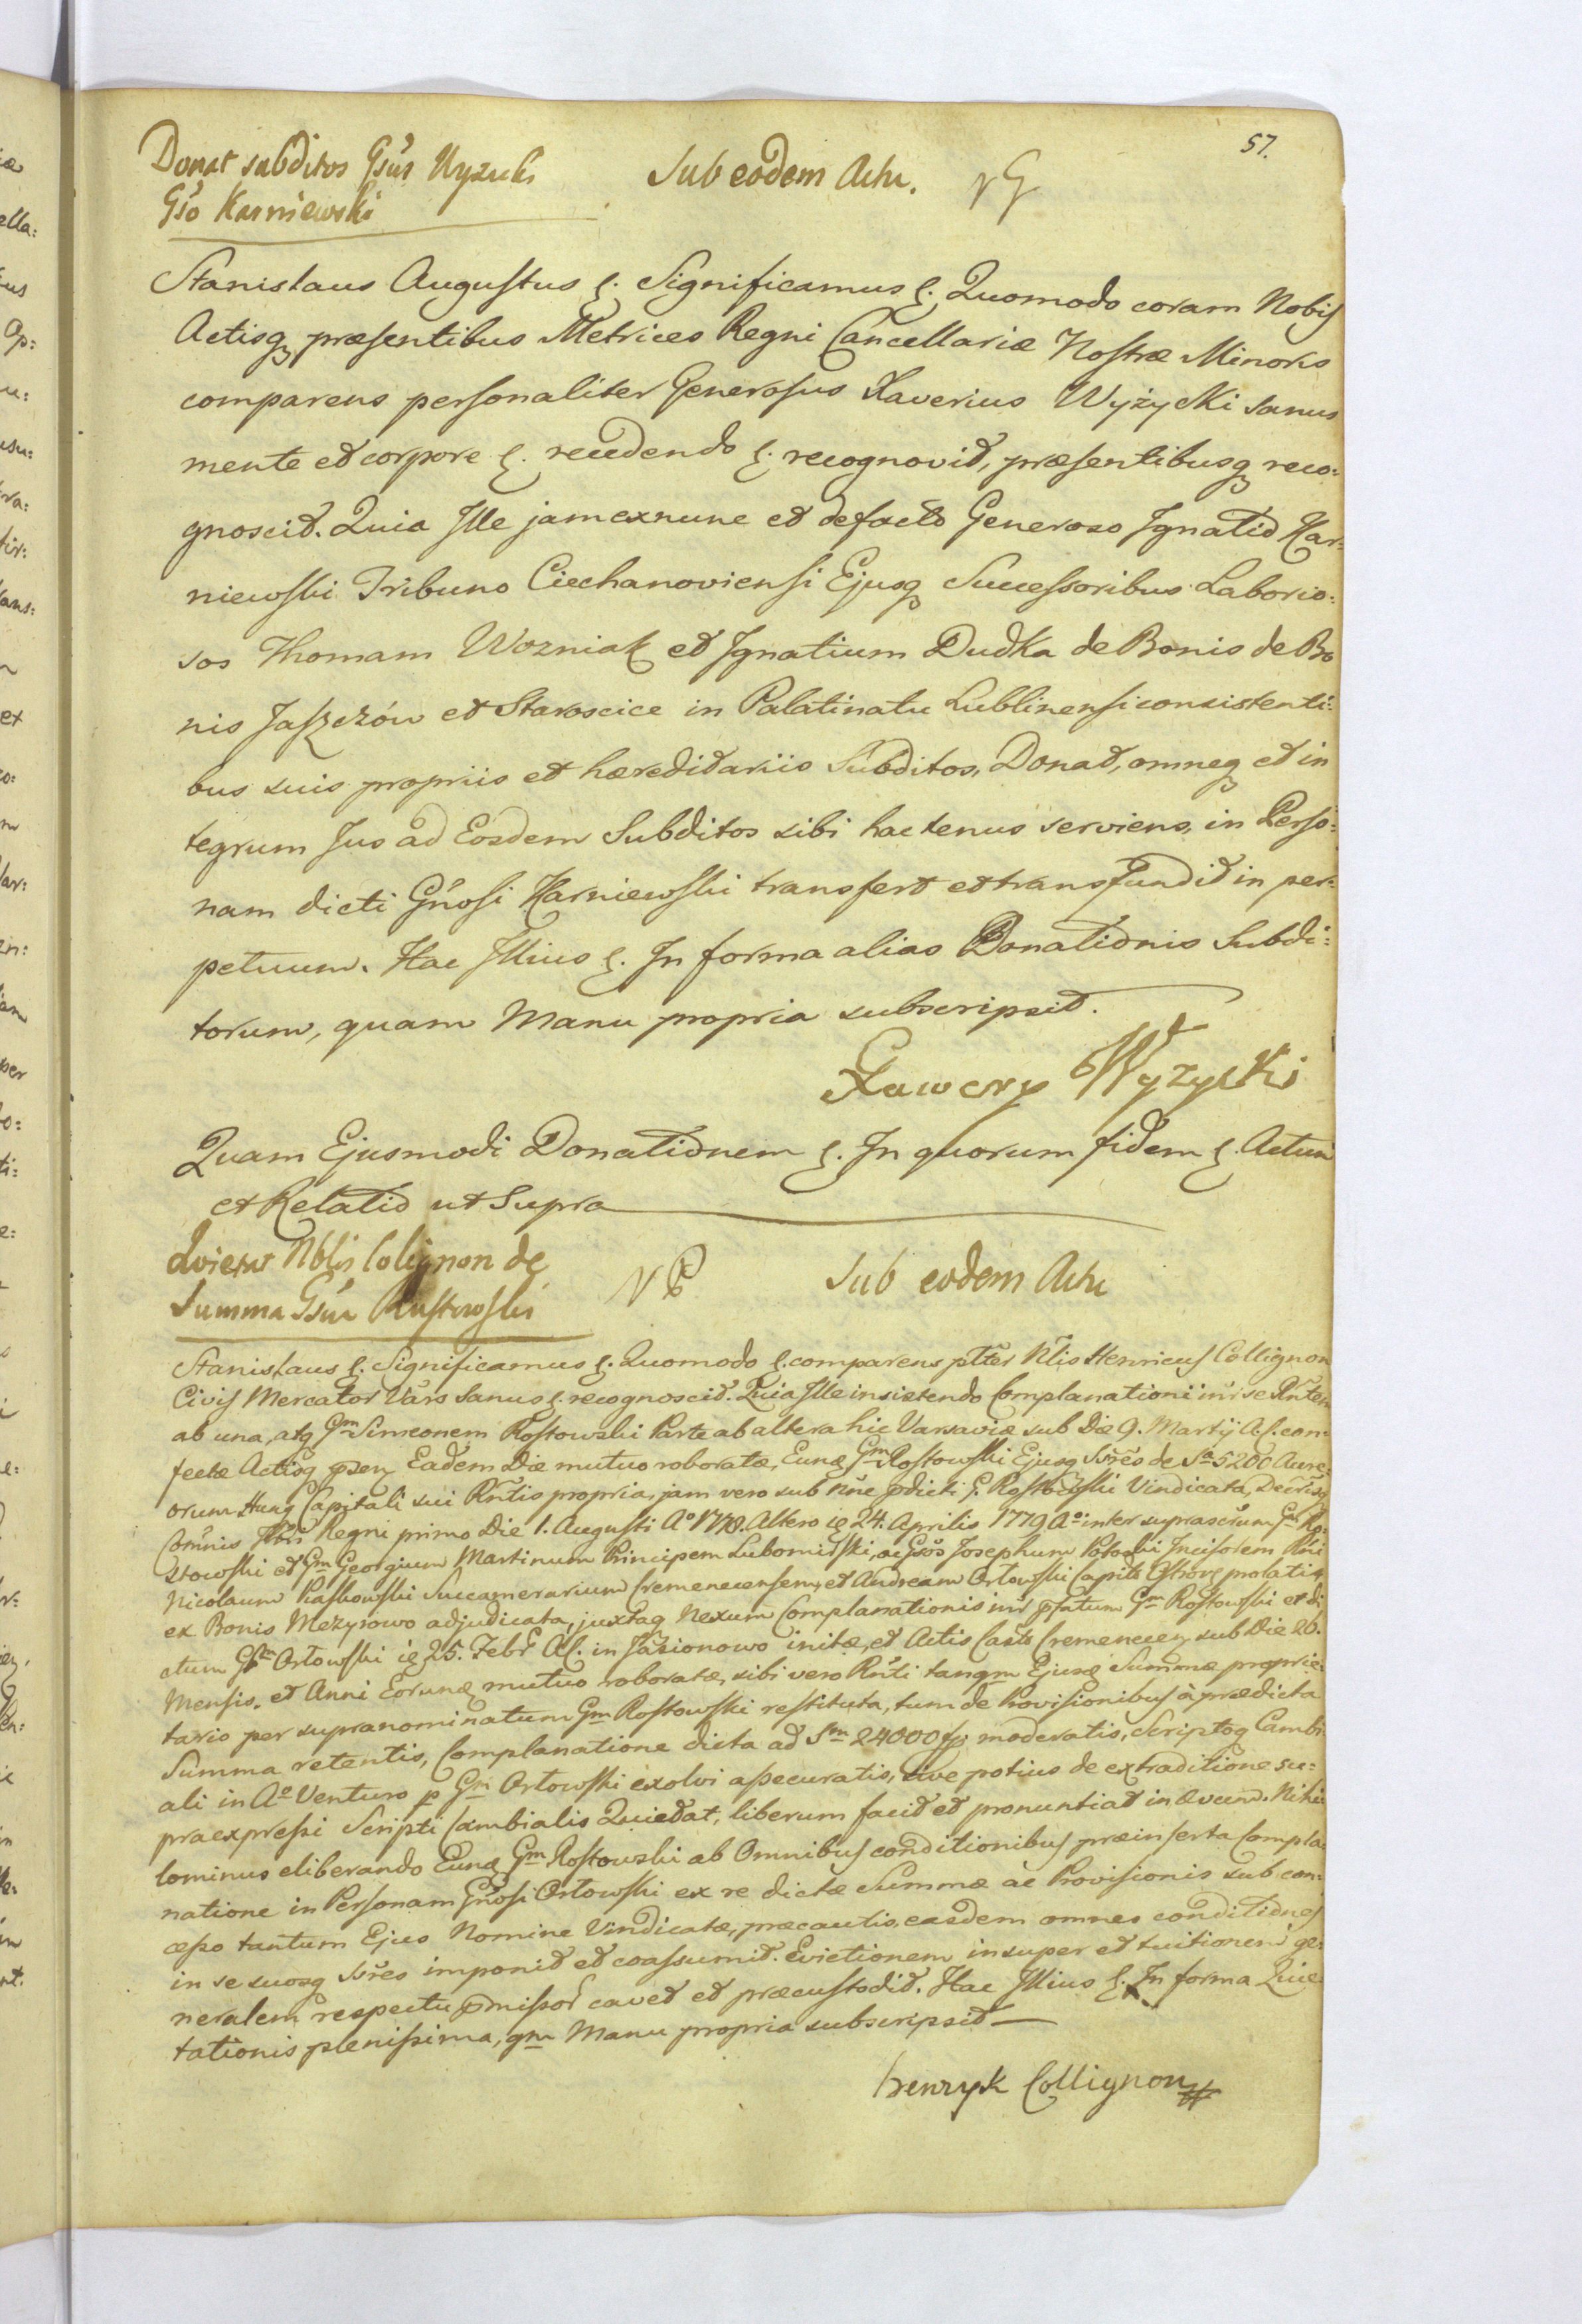 57.
Donat subditos Gsus Wyzicki
Gso Karniewski
Sub eodem Actu.
Stanislaus Augustus &. Significamus &. Quomodo coram Nobis
Actisq præsentibus Metrices Regni Cancellariæ Nostræ Minoris
comparens personaliter Generosus Xaverius Wyżycki sanus
mente et corpore &. recedendo &. recognovit, præsentibusq reco:
gnoscit. Quia Ille jam exnunc et defacto Generoso Ignatio Kar:
niewski Tribuno Ciechanoviensi Ejusq Successoribus Laborio:
sos Thomam Wozniak et Ignatium Dudka de Bonis de Bo
nis Jaszczów et Staroscice in Palatinatu Lublinensi consistenti:
bus suis propriis et hæreditariis Subditos, Donat, omneq et in
tegrum Jus ad Eosdem Subditos sibi hactenus serviens, in Perso:
nam dicti Gnosi Karniewski transfert et transfundit in per:
petuum. Hac Illius &. In forma alias Donationis Subdi:
torum, quam Manu propria subscripsit.
Xawery Wyżycki
Quam Ejusmodi Donationem &. In quorum fidem &. Actum
et Relatio ut Supra
Quietat Nblis Colignon de
Summa Gsum Rostowski
Sub eodem Actu
Stanislaus &. Significamus &. Quomodo &. comparens plter Nlis Henricus Collignon
Civis Mercator Vars sanus &. recognoscit. Quia Ille insistendo Complanationi intr se Rntem
ab una, atq Gm Simeonem Rostowski Parte ab altera hic Varsaviæ sub Die 9. Martij A. C. con:
fectæ Actisq Eadem Die mutuo roboratæ, Eunq Gm Rostowski Ejusq Ssres de Sa 5200 Aure:
orum Hung Capitali sui Rntis propria, jam vero sub Nne pdicti G. Rostowski Vindicata, Decretisq
Comnis Regni primo Die 1. Augusti Ao 1778. Altero ie 24. Aprilis 1779 Ao inter suprascrum Gm Ro:
stowski et Gm Georgium Martinum Principem Lubomirski, ac Gsos Josephum Potocki Incisorem Rni
Nicolaum Raszkowski Succamerarium Cremenecensem, et Andream Orłowski Capite prolatis
ex Bonis Mezyrowo adjudicata, juxtaq Nexum Complanationis intr Gm Rostowski et di
ctum Gm Orłowski ie 25. Febr A. C. in Jasionowo initæ, et Actis Casts Cremenecen sub Die 26.
Mensis. et Anni Eorunq mutuo roboratæ, sibi vero Rnti tanqm Ejusq Summæ proprie:
tario per supranominatum Gm Rostowski restituta, tum de Provisionibus à prædicta
Summa retentis, Complanatione dicta ad Sm 24000 fp moderatis, Scriptoq Cambi
ali in Ao Venturo p Gm Orłowski exolvi assecuratis, sive potius de extraditione su:
praexpressi Scripti Cambialis Quietat, liberum facit et pronuntiat in ævum. Nihi
lominus eliberando Eunq Gm Rostowski ab Omnibus conditionibus præinserta Compla
natione in Personam Gnosi Orłowski ex re dictæ Summæ ac Provisionis sub con:
cesso tantum Ejus Nomine Vindicatæ, præcautis, easdem omnes conditiones
in se suosq Ssres imponit et coassumit. Evictionem insuper et tuitionem ge:
neralem respectu pmissor cavet et præcustodit. Hac Illius &. In forma Quie:
tationis plenissima, qm Manu propria subscripsit
henryk Collignon